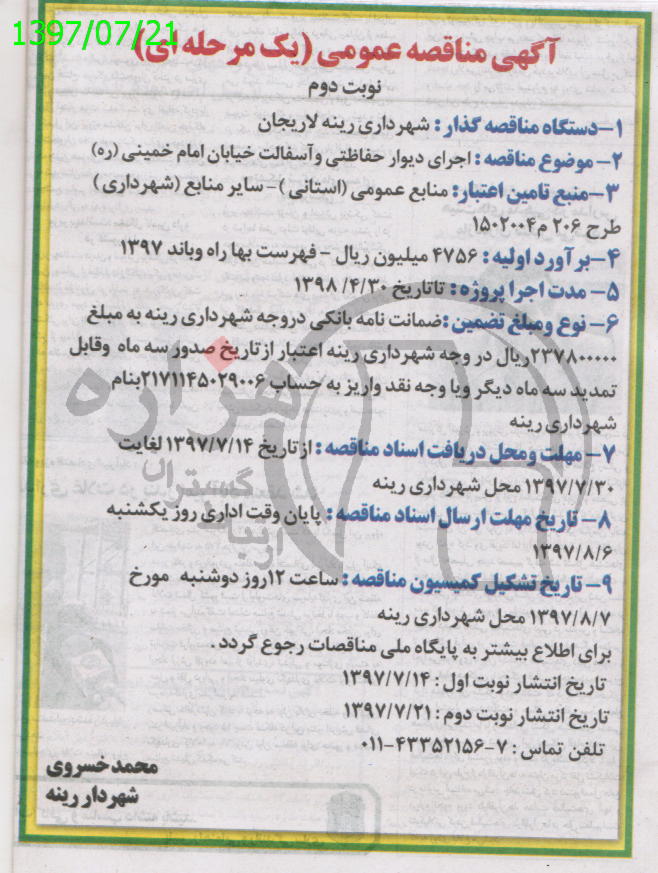 1397/07/21
آگهی مناقصه عمومی (یک مرحله ای)
نوبت دوم
۱-دستگاه مناقصه گذار : شهرداری رینه لاریجان
۲- موضوع مناقصه : اجرای دیوار حفاظتی وآسفالت خیابان امام خمینی (ره)
۳-منبع تامین اعتبار: منابع عمومی (استانی )- سایر منابع (شهرداری )
طرح ۲۰۶ م۱۵۰۲۰۰۴
۴-بر آورد اولیه : ۴۷۵۶ میلیون ریال - فهرست بها راه وباند ۱۳۹۷
۵- مدت اجرا پروژه : تاتاریخ ۱۳۹۸/۴/۳۰
۶- نوع ومبلغ تضمین :ضمانت نامه بانکی دروجه شهرداری رینه به مبلغ
۲۳۷۸۰۰۰۰۰ریال در وجه شهرداری رینه اعتبار ازتاریخ صدور سه ماه وقابل
تمدید سه ماه دیگر ویا وجه نقد واریز به حساب ۲۱۷۱۱۴۵۰۲۹۰۰۶بنام
شهرداری رینه
۷- مهلت ومحل دریافت اسناد مناقصه : ازتاریخ ۱۳۹۷/۷/۱۴ لغایت
۱۳۹۷/۷/۳۰ محل شهرداری رینه
۸- تاریخ مهلت ارسال اسناد مناقصه : پایان وقت اداری روز یکشنبه
۱۳۹۷/۸/۶
۹- تاریخ تشکیل کمیسیون مناقصه : ساعت ۱۲روز دوشنبه مورخ
۱۳۹۷/۸/۷ محل شهرداری رینه
برای اطلاع بیشتر به پایگاه ملی مناقصات رجوع گردد .
تاریخ انتشار نوبت اول : ۱۳۹۷/۷/۱۴
تاریخ انتشار نوبت دوم : ۱۳۹۷/۷/۲۱
تلفن تماس : ۷-۴۳۳۵۲۱۵۶-۰۱۱
محمدخسروی
شهردار رینه
هزاره
گستران